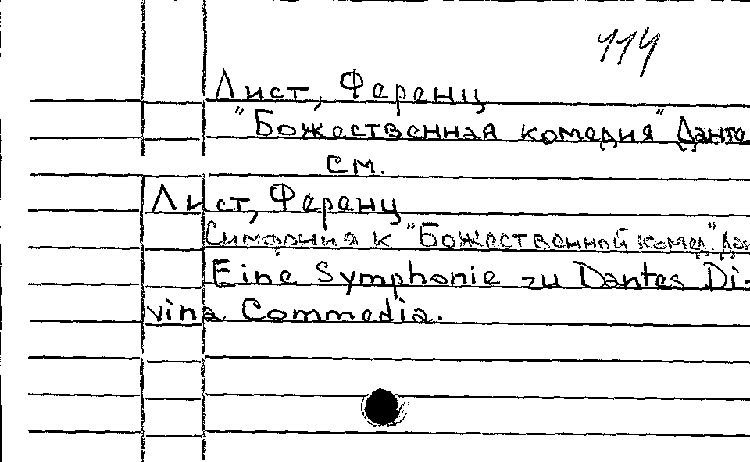 114
Лист, Ференц
"Божественная комедия" Данте
см.
Лист, Ференц
Симфония к "Божественной комед" Дан
Eine Symphonie zu Dantes Di-
vina Commedia.